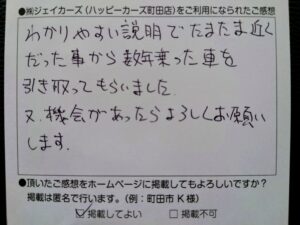 ●㈱ジェイカーズ（ハッピーカーズ町田店）をご利用になられたご感想
わかりやすい説明でたまたま近く
だった事から数年乗った車を
引き取ってもらいました
又、機会があったらよろしくお願い
します.
●頂いたご感想をホームページに掲載してもよろしいですか？
掲載は匿名で行います。（例：町田市 K 様）
☑掲載してよい　□掲載不可